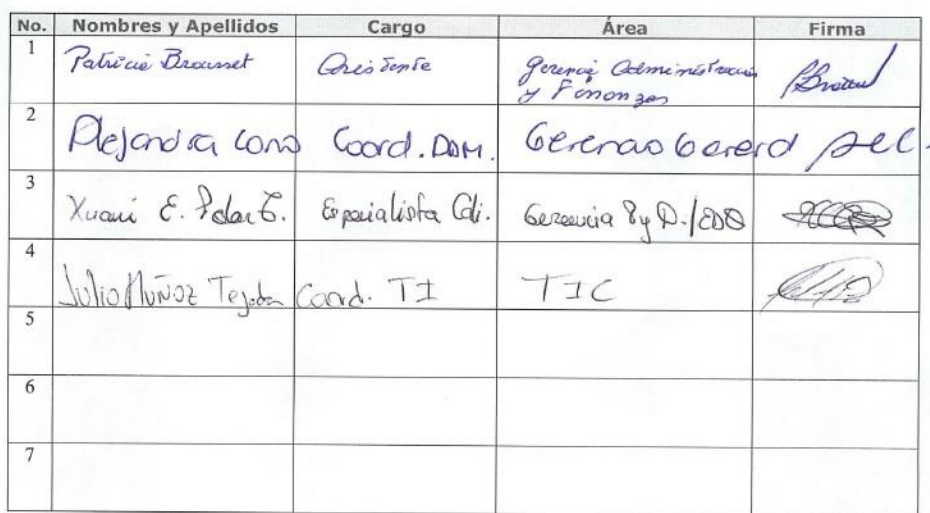 No. Nombres y Apellidos Cargo Área Firma
1 Patricia Brousset Asistente Gerencia Administración
y Finanzas
2 Alejandra Cano Coord. DAM. Gerencia General
3 Xuani E. Especialista Cdi. Gerencia P y D./EDO
4 Julio Muñoz Tejada Coord. TI TIC
5
6
7